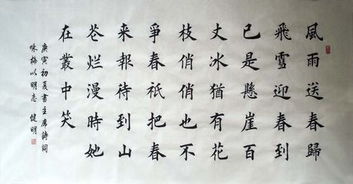 風雨送春歸
飛雪迎春到
已是懸崖百
丈冰猶有花
枝俏俏也不
爭春祇把春
來報待到山
花烂漫時她
在叢中笑
庚寅初夏書主席詩詞
咏梅以明志 健明